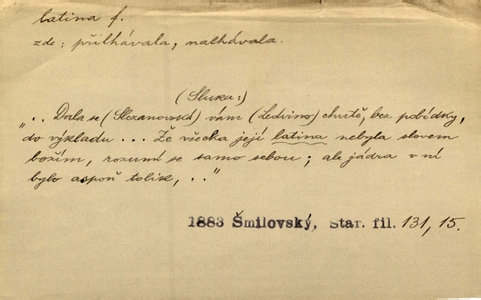 latina f.
zde: přilhávala, nalhávala.
(Sluka:)
".. Dala se (Slezanovská) vám (Ledvino) chutě, bez pobídky,
do výkladu ... Že všecka její latina nebyla slovem
božím, rozumí se samo sebou; ale jádra v ní
bylo aspoň tolik, .."
1883 Šmilovský, Star. fil. 131, 15.